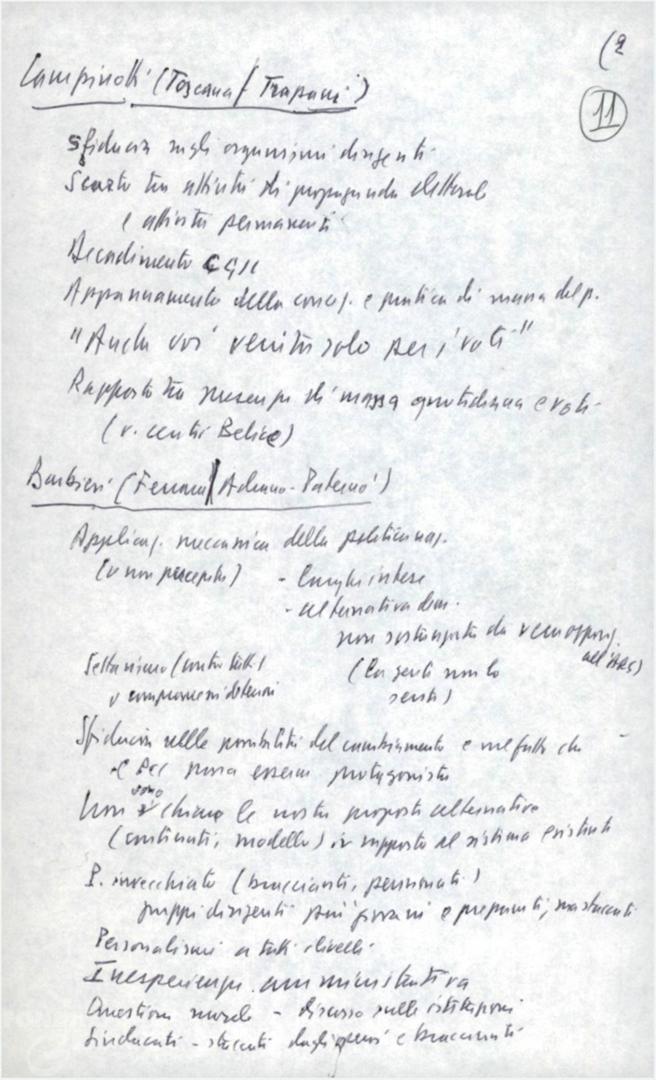 (2
11
Campinoti (Toscana/Trapani)
Sfiducia sugli organismi dirigenti
Scarto tra attività di propaganda elettorale
e attività permanenti
Decadimento CGIL
Appannamento della concez. e pratica di massa del p.
"Anche voi venite solo per i voti"
Rapporto tra presenza di massa quotidiana e voti
(v. centri Belice)
Barbieri (Ferrara/Adrano-Paternò)
Applicaz. meccanica della politica naz.
(o non recepita) - larghe intese
- alternativa dem.
non sostenuta da vera oppos.
all'ARS)
Settarismo (contro tutti)
(la gente non lo
o compromessi deteriori
sente)
Sfiducia nelle possibilità del cambiamento e nel fatto che
il PCI possa esserne protagonista
Non sono chiare le nostre proposte alternative
(contenuti, modello) in rapporto al sistema esistente
P. invecchiato (braccianti, pensionati)
gruppi dirigenti più giovani e preparati, ma staccati
Personalismi a tutti i livelli
Inesperienza amministrativa
Questione morale - discorso sulle istituzioni
Sindacati - staccati dagli operai e braccianti